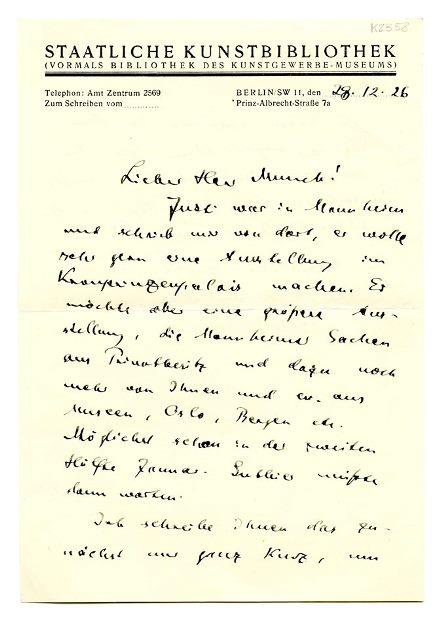 K2358
STAATLICHE KUNSTBIBLIOTHEK
(VORMALS BIBLIOTHEK DES KUNSTGEWERBE-MUSEUMS)
Telephon: Amt Zentrum 2569
Zum Schreiben vom
BERLIN SW 11, den 28.12.26
Prinz-Albrecht-Straße 7a
Lieber Herr Munch!
Justi war in Mannheim
und schrieb mir von dort, er wolle
sehr gern eine Ausstellung im
Kronprinzenpalais machen. Er
möchte aber eine größere Aus-
stellung, die Mannheimer Sachen
aus Privatbesitz und dazu noch
mehr von Ihnen und ev. aus
Museen, Oslo, Bergen etc.
Möglichst schon in der zweiten
Hälfte Januar. müßte
dann warten.
Ich schreibe Ihnen das zu-
nächst nur ganz kurz, um